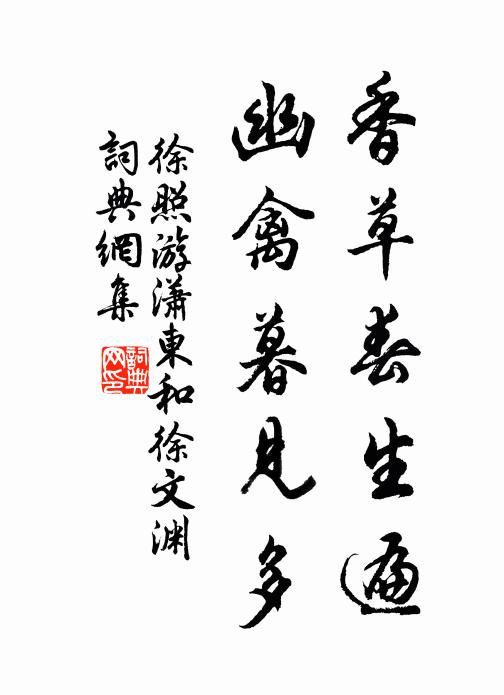 香草春生遍
幽禽暮見多
徐照游瀟東和徐文渊
詞典網集
詞典网印